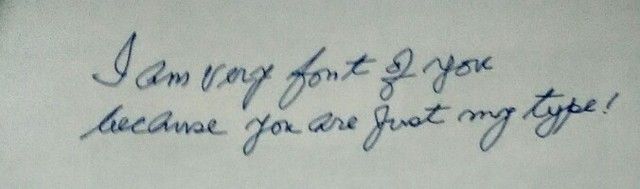 I am very font of you
because you are just my type!